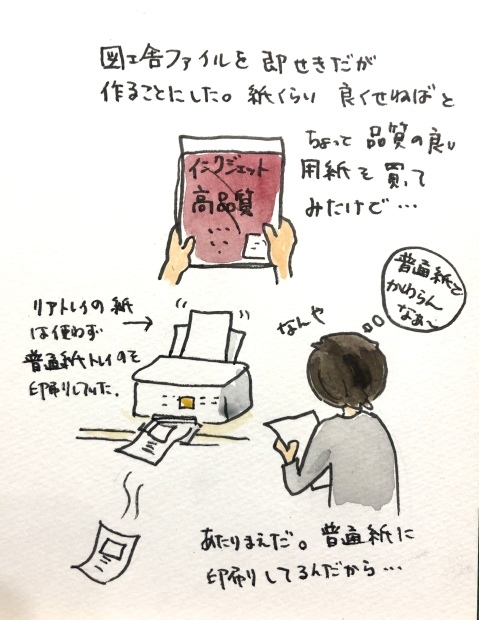 図工舎ファイルを 即せきだが
作ることにした。紙くらい 良くせねばと
ちょって 品質の良い
用紙を 買って
みたけど…
インクジェット
高品質
普通紙と
かわらん
なあ〜
なんや
リアトレイの紙
は使わず
普通紙トレイのを
印刷していた。
あたりまえだ。普通紙に
印刷してるんだから…